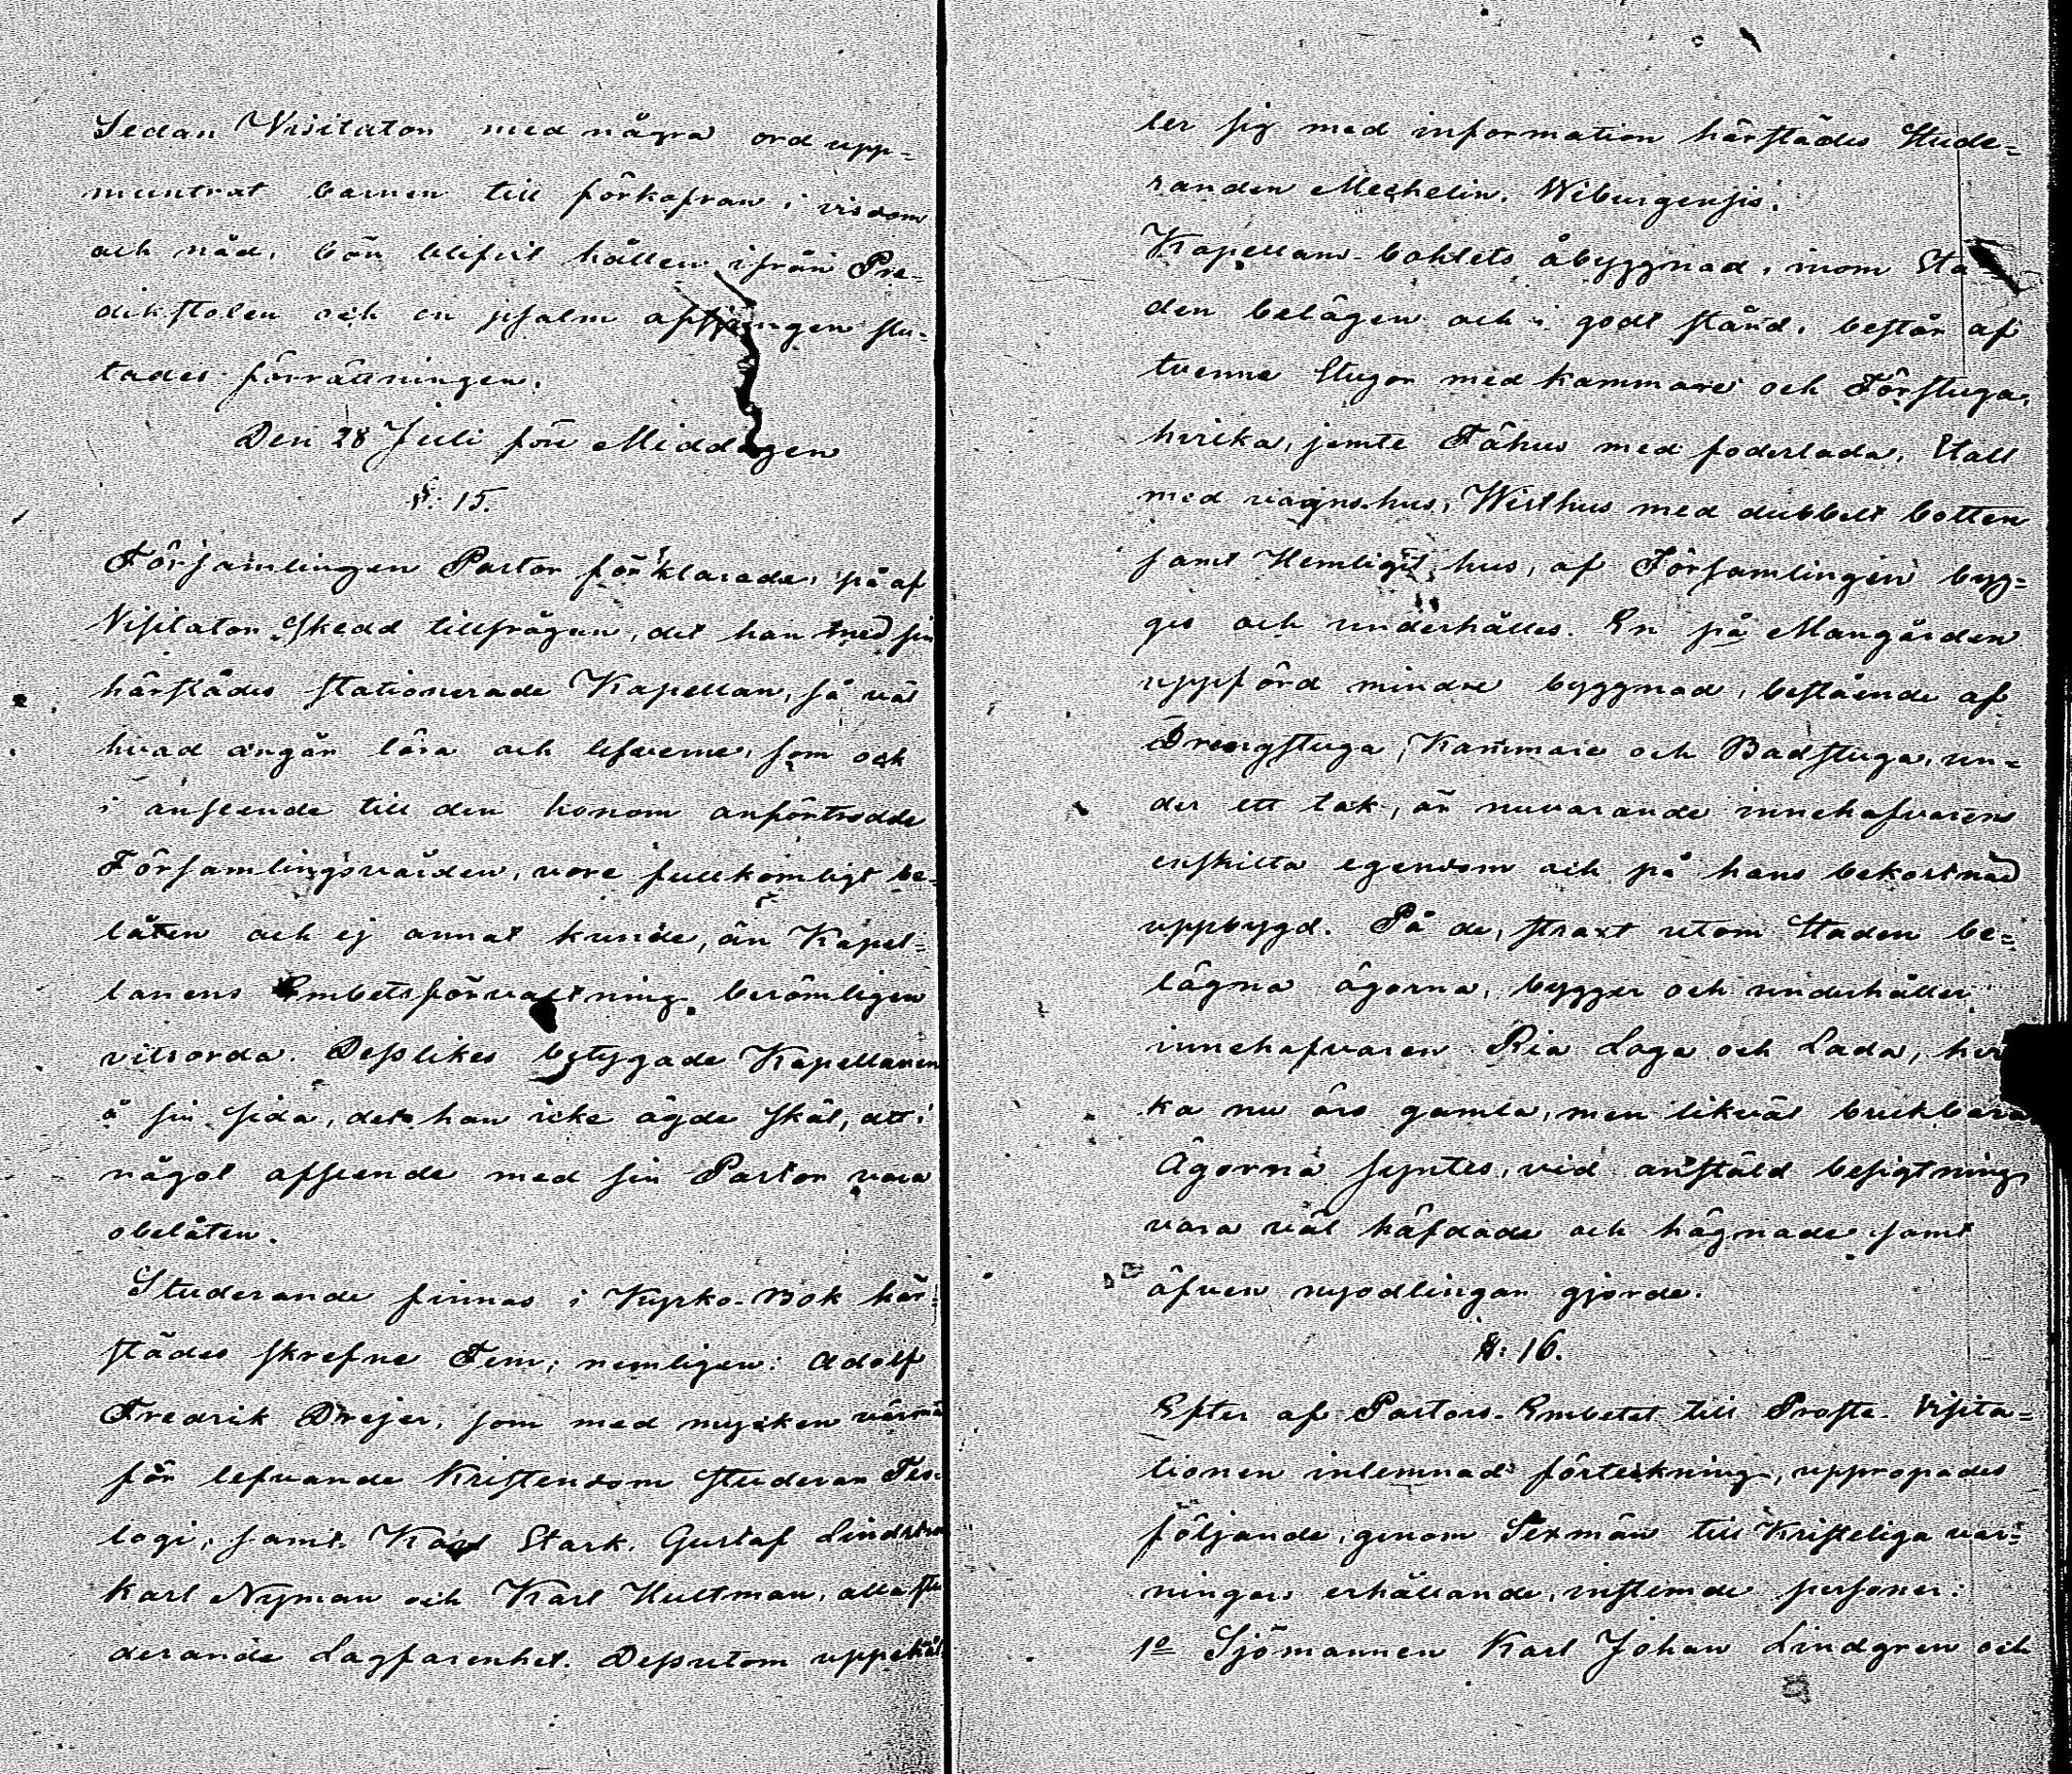 Sedan Visitator med några ord upp=
muntrat barnen till förkofran i visdom
och nåd, bön blifvit hållen ifrån Pre=
dikstolen och en psalm afsjungen slu=
tades förrättningen.
Den 28 Juli före Middagen
§: 15.
Församlingen Pastor förklarade, på af
Visitator skedd tillfrågan, det han med sin
härstädes stationerade Kapellan, så väl
hvad angår lära och lefverne, som ock
i anseende till den honom anförtrodde
Församlingsvården, vore fullkomligt be=
låten och ej annat kunde, än Kapel=
lanens Embetsförvaltning berömligen
vitsorda. Desslikes betygade Kapellanen
å sin sida, det han icke ägde skäl, att i
något afseende med sin Pastor vara
obelåten.
Studerande finnas i Kyrko-Bok här=
städes skrefne Fem; nemligen: Adolf
Fredrik Dreijer, som med mycken värma
för lefvande Kristendom studerar Teo=
logi, samt Karl Stark, Gustaf Lindström
Karl Nyman och Karl Hultman, alla stu
derande Lagfarenhet. Dessutom uppehål=
ler sig med information härstädes Stude=
randen Mechelin, Wiburgensis.
Kapellans-bohlets åbyggnad, inom Sta=
den belägen och i godt stånd, består af
tvenne Stugor med kammare och Förstuga,
hvilka, jemte Fähus med foderlada, Stall
med vagnshus, Visthus med dubbelt botten
samt Hemligit hus, af Församlingen byg=
ges och underhålles. En på Mangården
uppförd mindre byggnad, bestående af
Drengstuga, Kammare och Badstuga, un=
der ett tak, är nuvarande innehafvarens
enskilta egendom och på hans bekostnad
uppbygd. På de, straxt utom Staden be=
lägna ägorna, bygger och underhåller
innehafvaren Ria Loge och Lada, hvil
ka nu äro gamla, men likväl brukbara
Ägorna syntes, vid anstäld besigtning,
vara väl häfdade och hägnade samt
äfven nyodlingar gjorde.
§: 16.
Efter af Pastors-Embetet till Proste-Visita=
tionen inlemnad förteckning, uppropades
följande, genom Sexmän till Kristeliga var=
ningars erhållande, instemde personer:
1o Sjömannen Karl Johan Lindgren och